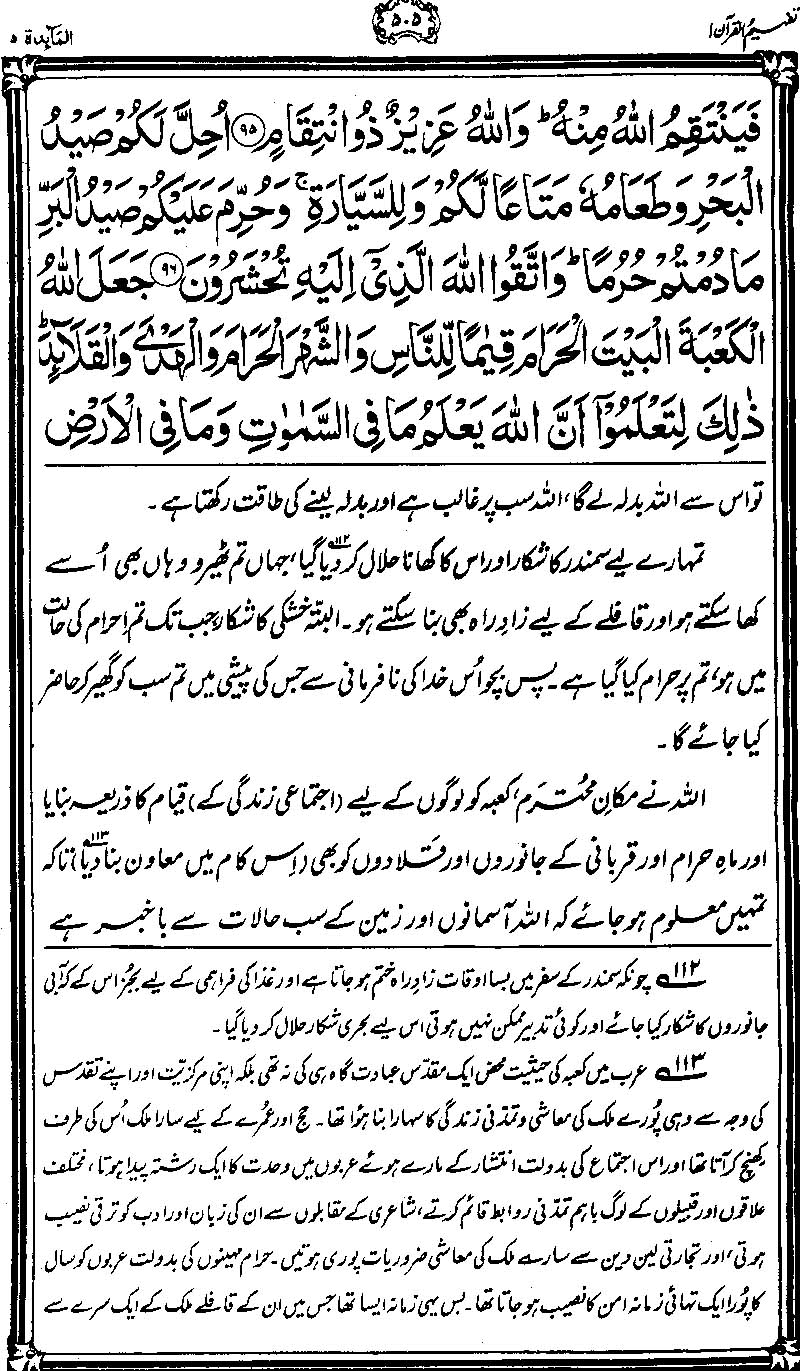 تفہیم القرآن ۱
۵۰۵
المآئدۃ ۵
فَيَنْتَقِمُ اللّٰهُ مِنْهُ ؕ وَاللّٰهُ عَزِيْزٌ ذُو انْتِقَامٍ ﴿۹۵﴾ اُحِلَّ لَكُمْ صَيْدُ
الْبَحْرِ وَطَعَامُهٗ مَتَاعًا لَّكُمْ وَلِلسَّيَّارَةِ ۚ وَحُرِّمَ عَلَيْكُمْ صَيْدُ الْبَرِّ
مَا دُمْتُمْ حُرُمًا ؕ وَاتَّقُوا اللّٰهَ الَّذِيْۤ اِلَيْهِ تُحْشَرُوْنَ ﴿۹۶﴾ جَعَلَ اللّٰهُ
الْكَعْبَةَ الْبَيْتَ الْحَرَامَ قِيٰمًا لِّلنَّاسِ وَالشَّهْرَ الْحَرَامَ وَالْهَدْيَ وَالْقَلَآئِدَ ؕ
ذٰلِكَ لِتَعْلَمُوْۤا اَنَّ اللّٰهَ يَعْلَمُ مَا فِي السَّمٰوٰتِ وَمَا فِي الْاَرْضِ
تو اس سے اللہ بدلہ لے گا، اللہ سب پر غالب ہے اور بدلہ لینے کی طاقت رکھتا ہے۔
تمہارے لیے سمندر کا شکار اور اس کا کھانا حلال کر دیا گیا۱۱۲، جہاں تم ٹھیرو وہاں بھی اُسے
کھا سکتے ہو اور قافلے کے لیے زادِ راہ بھی بنا سکتے ہو۔ البتہ خشکی کا شکار، جب تک تم اِحرام کی حالت
میں ہو، تم پر حرام کیا گیا ہے۔ پس بچو اُس خدا کی نافرمانی سے جس کی پیشی میں تم سب کو گھیر کر حاضر
کیا جائے گا۔
اللہ نے مکانِ محترم، کعبہ کو لوگوں کے لیے (اجتماعی زندگی کے) قیام کا ذریعہ بنایا
اور ماہِ حرام اور قربانی کے جانوروں اور قلادوں کو بھی (اِس کام میں معاون بنا دیا۱۱۳) تاکہ
تمہیں معلوم ہو جائے کہ اللہ آسمانوں اور زمین کے سب حالات سے باخبر ہے
۱۱۲ چونکہ سمندر کے سفر میں بسا اوقات زادِ راہ ختم ہو جاتا ہے اور غذا کی فراہمی کے لیے بجز اس کے کہ آبی
جانوروں کا شکار کیا جائے اور کوئی تدبیر ممکن نہیں ہوتی اس لیے بحری شکار حلال کر دیا گیا۔
۱۱۳ عرب میں کعبہ کی حیثیت محض ایک مقدّس عبادت گاہ ہی کی نہ تھی بلکہ اپنی مرکزیّت اور اپنے تقدّس
کی وجہ سے وہی پُورے ملک کی معاشی و تمدّنی زندگی کا سہارا بنا ہوا تھا۔ حج اور عُمرے کے لیے سارا ملک اُس کی طرف
کھنچ کر آتا تھا اور اس اجتماع کی بدولت انتشار کے مارے ہوئے عربوں میں وحدت کا ایک رشتہ پیدا ہوتا، مختلف
علاقوں اور قبیلوں کے لوگ باہم تمدّنی روابط قائم کرتے، شاعری کے مقابلوں سے ان کی زبان اور ادب کو ترقی نصیب
ہوتی، اور تجارتی لین دین سے سارے ملک کی معاشی ضروریات پوری ہوتیں۔ حرام مہینوں کی بدولت عربوں کو سال
کا پُورا ایک تہائی زمانہ امن کا نصیب ہو جاتا تھا۔ بس یہی زمانہ ایسا تھا جس میں ان کے قافلے ملک کے ایک سرے سے